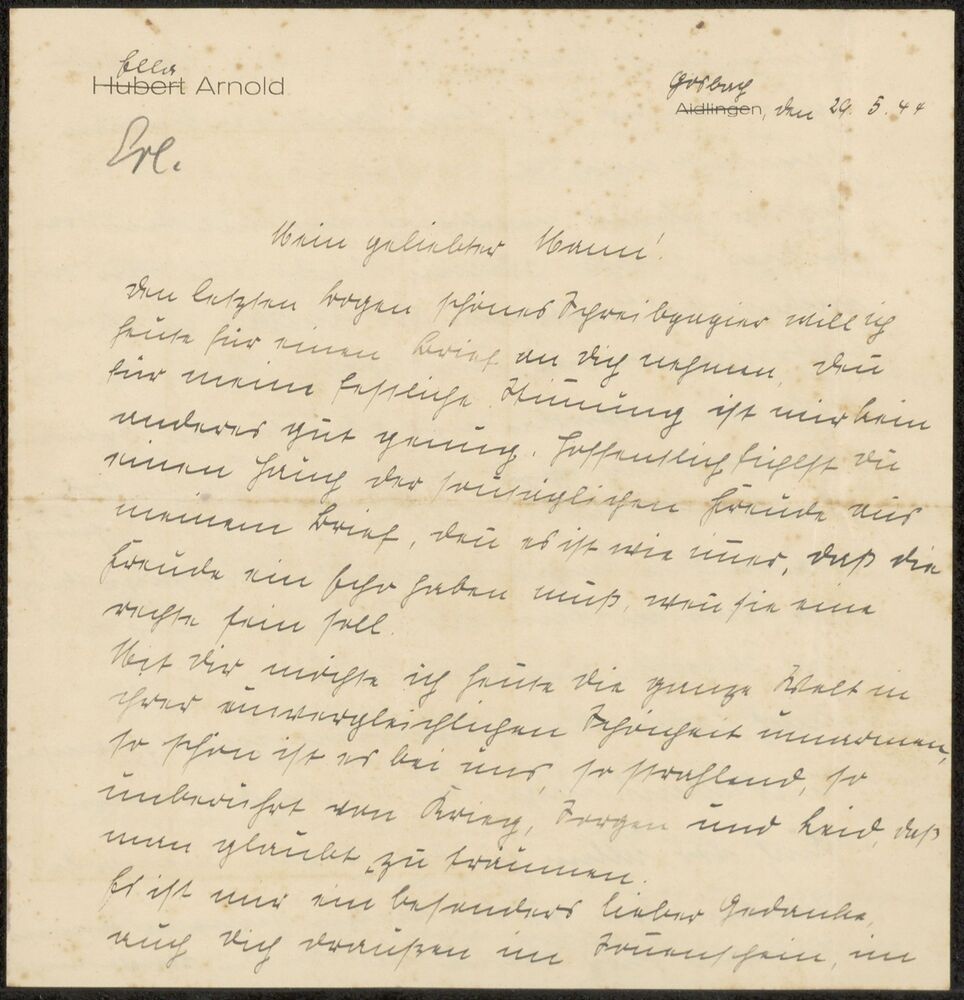 Ella
Hubert Arnold
Gosbach
Aidlingen, den 29. 5. 44
Erl.
Mein geliebter Mann!
Den letzten Bogen schönes Schreibpapier will ich
heute für einen Brief an Dich nehmen, den̄
für meine festliche Stim̄ung ist mir kein
anderes gut genug. Hoffentlich fühlst Du
einen Hauch der sonntäglichen Freude aus
meinem Brief, den̄ es ist wie im̄er, daß die
Freude ein Echo haben muß, wen̄ sie eine
rechte sein soll.
Mit Dir möchte ich heute die ganze Welt in
ihrer unvergleichlichen Schönheit umarmen,
so schön ist es bei uns, so strahlend, so
unberührt von Krieg, Sorgen und Leid, daß
man glaubt, zu träumen.
Es ist mir ein besonders lieber Gedanke,
auch Dich draußen im Son̄enschein, im